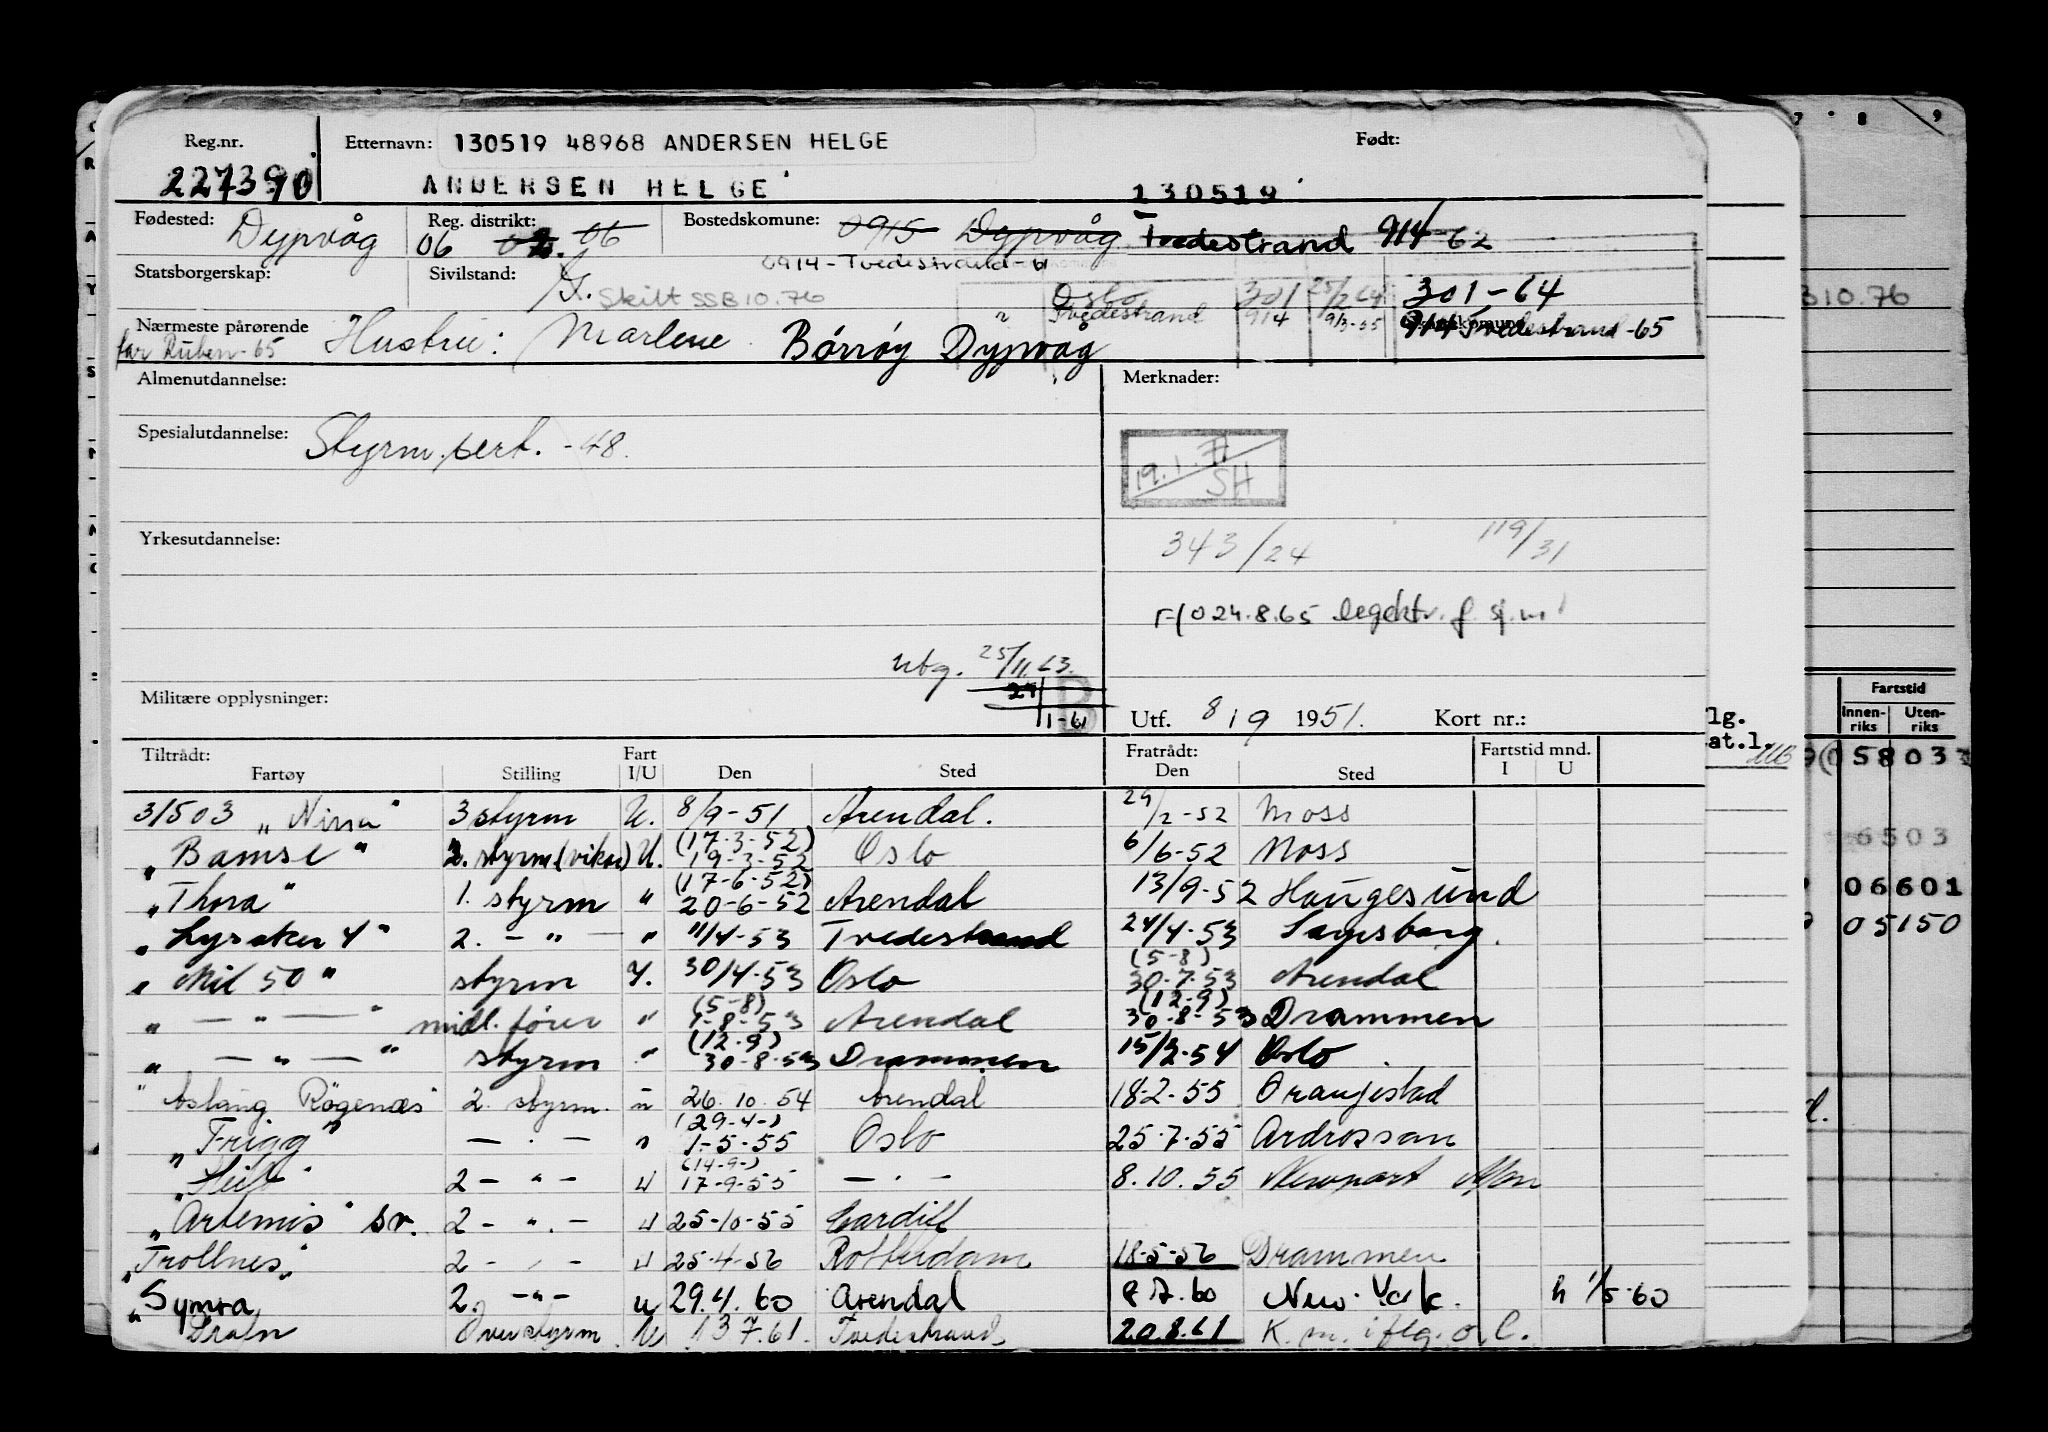 Reg.nr. Etternavn: 130519 48968 ANDERSEN HELGE Født:
227390 ANDERSEN HELGE 130519
Fødested: Dypvåg Reg. distrikt: 06 06 Bostedskomune: 0915 Dypvåg Tvedestrand 914-62
0914-Tvedestrand-
Statsborgerskap: Sivilstand: G. Skilt SSB 10.76 Oslo 301 25/2 64 301-64
Tvedestrand 914 9/3-65 914 Tvedestrand-65
Nærmeste pårørende Hustru: Marlene Børrøy Dypvåg
far Ruben-65
Almenutdannelse: Merknader:
Spesialutdannelse: Styrm.sert. -48.
19.1.71
SH
Yrkesutdannelse: 343/24 119/31
24.8.65 legektr. f. sj.m
utg. 25/11.63.
Militære opplysninger: 1-61 B Utf. 8/9 1951. Kort nr.:
Tiltrådt: Fart Fratrådt: Fartstid mnd.
Fartøy Stilling I/U Den Sted Den Sted I U
31503 "Nina" 3 styrm U. 8/9-51 Arendal. 29/2-52 Moss
"Bamse" 2. styrm (vikar) U. (17-3-52) 19-3-52 Oslo 6/6-52 Moss
"Thora" 1. styrm " (17-6-52) 20-6-52 Arendal 13/9-52 Haugesund
"Lysaker 4" 2. - " - " 11/4-53 Tvedestrand 24/4-53 Sarpsborg.
"Mil 50" styrm I. 30/4-53 Oslo (5-8) 30.7.53 Arendal
" - " - " midl. fører " (5-8) 1-8-53 Arendal (12-9) 30-8-53 Drammen
" - " - " styrm " (12-9) 30-8-53 Drammen 15/2-54 Oslo
"Aslaug Rögenæs 2. styrm. u 26.10.54 Arendal 18-2-55 Oranjestad
"Frigg" - " - " (29-4-) 1-5-55 Oslo 25-7-55 Ardrossan
2 - " - u (14-9-) 17-9-55 - " - 8.10.55 Newport Mon
"Artemis" sv. 2 - " - u 25-10-55 Cardiff
"Trollnes" 2 - " - u 25-4-56 Rotterdam 18-5-56 Drammen
"Symra 2. - " - u 29.4.60 Arendal 8.7.60 New York. h 1/5-60
Overstyrm. U 13 7.61. Tvedestrand 20.8.61 K.m. iflg. o.l.
7 8 9
310.76
Fartstid
Innen-riks Uten-riks
lg.
at.l.
058037
6503
06601
05150
d.